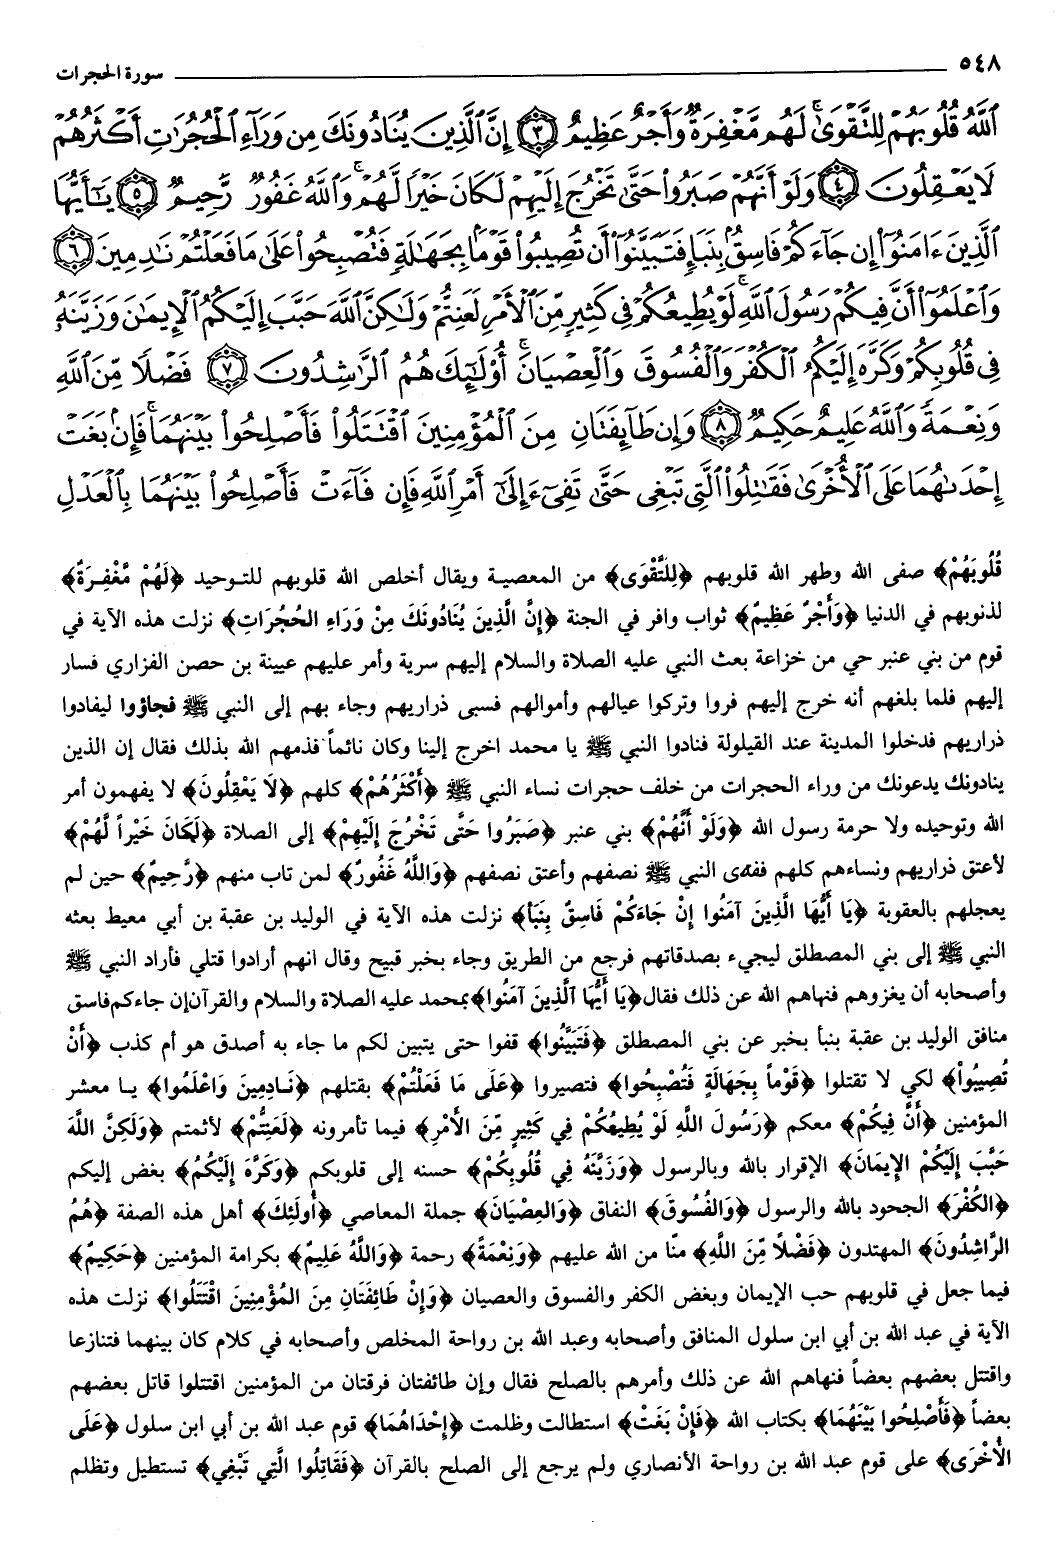 ٥٤٨ سورة الحجرات
ٱللَّهُ قُلُوبَهُمْ لِلتَّقْوَىٰ ۚ لَهُم مَّغْفِرَةٌ وَأَجْرٌ عَظِيمٌ ﴿٣﴾ إِنَّ ٱلَّذِينَ يُنَادُونَكَ مِن وَرَآءِ ٱلْحُجُرَٰتِ أَكْثَرُهُمْ
لَا يَعْقِلُونَ ﴿٤﴾ وَلَوْ أَنَّهُمْ صَبَرُوا۟ حَتَّىٰ تَخْرُجَ إِلَيْهِمْ لَكَانَ خَيْرًا لَّهُمْ ۚ وَٱللَّهُ غَفُورٌ رَّحِيمٌ ﴿٥﴾ يَـٰٓأَيُّهَا
ٱلَّذِينَ ءَامَنُوٓا۟ إِن جَآءَكُمْ فَاسِقٌۢ بِنَبَإٍ فَتَبَيَّنُوٓا۟ أَن تُصِيبُوا۟ قَوْمًۢا بِجَهَـٰلَةٍ فَتُصْبِحُوا۟ عَلَىٰ مَا فَعَلْتُمْ نَـٰدِمِينَ ﴿٦﴾
وَٱعْلَمُوٓا۟ أَنَّ فِيكُمْ رَسُولَ ٱللَّهِ ۚ لَوْ يُطِيعُكُمْ فِى كَثِيرٍ مِّنَ ٱلْأَمْرِ لَعَنِتُّمْ وَلَـٰكِنَّ ٱللَّهَ حَبَّبَ إِلَيْكُمُ ٱلْإِيمَـٰنَ وَزَيَّنَهُۥ
فِى قُلُوبِكُمْ وَكَرَّهَ إِلَيْكُمُ ٱلْكُفْرَ وَٱلْفُسُوقَ وَٱلْعِصْيَانَ ۚ أُو۟لَـٰٓئِكَ هُمُ ٱلرَّٰشِدُونَ ﴿٧﴾ فَضْلًا مِّنَ ٱللَّهِ
وَنِعْمَةً ۚ وَٱللَّهُ عَلِيمٌ حَكِيمٌ ﴿٨﴾ وَإِن طَآئِفَتَانِ مِنَ ٱلْمُؤْمِنِينَ ٱقْتَتَلُوا۟ فَأَصْلِحُوا۟ بَيْنَهُمَا ۖ فَإِنۢ بَغَتْ
إِحْدَىٰهُمَا عَلَى ٱلْأُخْرَىٰ فَقَـٰتِلُوا۟ ٱلَّتِى تَبْغِى حَتَّىٰ تَفِىٓءَ إِلَىٰٓ أَمْرِ ٱللَّهِ ۚ فَإِن فَآءَتْ فَأَصْلِحُوا۟ بَيْنَهُمَا بِٱلْعَدْلِ
قُلُوبَهُمْ﴾ صفى الله وطهر الله قلوبهم ﴿لِلتَّقْوَى﴾ من المعصية ويقال أخلص الله قلوبهم للتوحيد ﴿لَهُمْ مَّغْفِرَةٌ﴾
لذنوبهم في الدنيا ﴿وَأَجْرٌ عَظِيمٌ﴾ ثواب وافر في الجنة ﴿إِنَّ الَّذِينَ يُنَادُونَكَ مِنْ وَرَاءِ الحُجُرَاتِ﴾ نزلت هذه الآية في
قوم من بني عنبر حي من خزاعة بعث النبي عليه الصلاة والسلام إليهم سرية وأمر عليهم عيينة بن حصن الفزاري فسار
إليهم فلما بلغهم أنه خرج إليهم فروا وتركوا عيالهم وأموالهم فسبى ذراريهم وجاء بهم إلى النبي ﷺ فجاؤوا ليفادوا
ذراريهم فدخلوا المدينة عند القيلولة فنادوا النبي ﷺ يا محمد اخرج إلينا وكان نائماً فذمهم الله بذلك فقال إن الذين
ينادونك يدعونك من وراء الحجرات من خلف حجرات نساء النبي ﷺ ﴿أَكْثَرُهُمْ﴾ كلهم ﴿لَا يَعْقِلُونَ﴾ لا يفهمون أمر
الله وتوحيده ولا حرمة رسول الله ﴿وَلَوْ أَنَّهُمْ﴾ بني عنبر ﴿صَبَرُوا حَتَّى تَخْرُجَ إِلَيْهِمْ﴾ إلى الصلاة ﴿لَكَانَ خَيْراً لَّهُمْ﴾
لأعتق ذراريهم ونساءهم كلهم ففدى النبي ﷺ نصفهم وأعتق نصفهم ﴿وَاللَّهُ غَفُورٌ﴾ لمن تاب منهم ﴿رَّحِيمٌ﴾ حين لم
يعجلهم بالعقوبة ﴿يَا أَيُّهَا الَّذِينَ آمَنُوا إِنْ جَاءَكُمْ فَاسِقٌ بِنَبَأٍ﴾ نزلت هذه الآية في الوليد بن عقبة بن أبي معيط بعثه
النبي ﷺ إلى بني المصطلق ليجيء بصدقاتهم فرجع من الطريق وجاء بخبر قبيح وقال انهم أرادوا قتلي فأراد النبي ﷺ
وأصحابه أن يغزوهم فنهاهم الله عن ذلك فقال ﴿يَا أَيُّهَا الَّذِينَ آمَنُوا﴾ بمحمد عليه الصلاة والسلام والقرآن إن جاءكم فاسق
منافق الوليد بن عقبة بنبأ بخبر عن بني المصطلق ﴿فَتَبَيَّنُوا﴾ قفوا حتى يتبين لكم ما جاء به أصدق هو أم كذب ﴿أَنْ
تُصِيبُوا﴾ لكي لا تقتلوا ﴿قَوْماً بِجَهَالَةٍ فَتُصْبِحُوا﴾ فتصيروا ﴿عَلَى مَا فَعَلْتُمْ﴾ بقتلهم ﴿نَادِمِينَ وَاعْلَمُوا﴾ يا معشر
المؤمنين ﴿أَنَّ فِيكُمْ﴾ معكم ﴿رَسُولَ اللَّهِ لَوْ يُطِيعُكُمْ فِي كَثِيرٍ مِّنَ الأَمْرِ﴾ فيما تأمرونه ﴿لَعَنِتُّمْ﴾ لأثمتم ﴿وَلَكِنَّ اللَّهَ
حَبَّبَ إِلَيْكُمُ الإِيمَانَ﴾ الإقرار بالله وبالرسول ﴿وَزَيَّنَهُ فِي قُلُوبِكُمْ﴾ حسنه إلى قلوبكم ﴿وَكَرَّهَ إِلَيْكُمُ﴾ بغض إليكم
﴿الكُفْرَ﴾ الجحود بالله والرسول ﴿وَالفُسُوقَ﴾ النفاق ﴿وَالعِصْيَانَ﴾ جملة المعاصي ﴿أُولَئِكَ﴾ أهل هذه الصفة ﴿هُمُ
الرَّاشِدُونَ﴾ المهتدون ﴿فَضْلاً مِّنَ اللَّهِ﴾ منّا من الله عليهم ﴿وَنِعْمَةً﴾ رحمة ﴿وَاللَّهُ عَلِيمٌ﴾ بكرامة المؤمنين ﴿حَكِيمٌ﴾
فيما جعل في قلوبهم حب الإيمان وبغض الكفر والفسوق والعصيان ﴿وَإِنْ طَائِفَتَانِ مِنَ المُؤْمِنِينَ اقْتَتَلُوا﴾ نزلت هذه
الآية في عبد الله بن أبي ابن سلول المنافق وأصحابه وعبد الله بن رواحة المخلص وأصحابه في كلام كان بينهما فتنازعا
واقتتل بعضهم بعضاً فنهاهم الله عن ذلك وأمرهم بالصلح فقال وإن طائفتان فرقتان من المؤمنين اقتتلوا قاتل بعضهم
بعضاً ﴿فَأَصْلِحُوا بَيْنَهُمَا﴾ بكتاب الله ﴿فَإِنْ بَغَتْ﴾ استطالت وظلمت ﴿إِحْدَاهُمَا﴾ قوم عبد الله بن أبي ابن سلول ﴿عَلَى
الأُخْرَى﴾ على قوم عبد الله بن رواحة الأنصاري ولم يرجع إلى الصلح بالقرآن ﴿فَقَاتِلُوا الَّتِي تَبْغِي﴾ تستطيل وتظلم